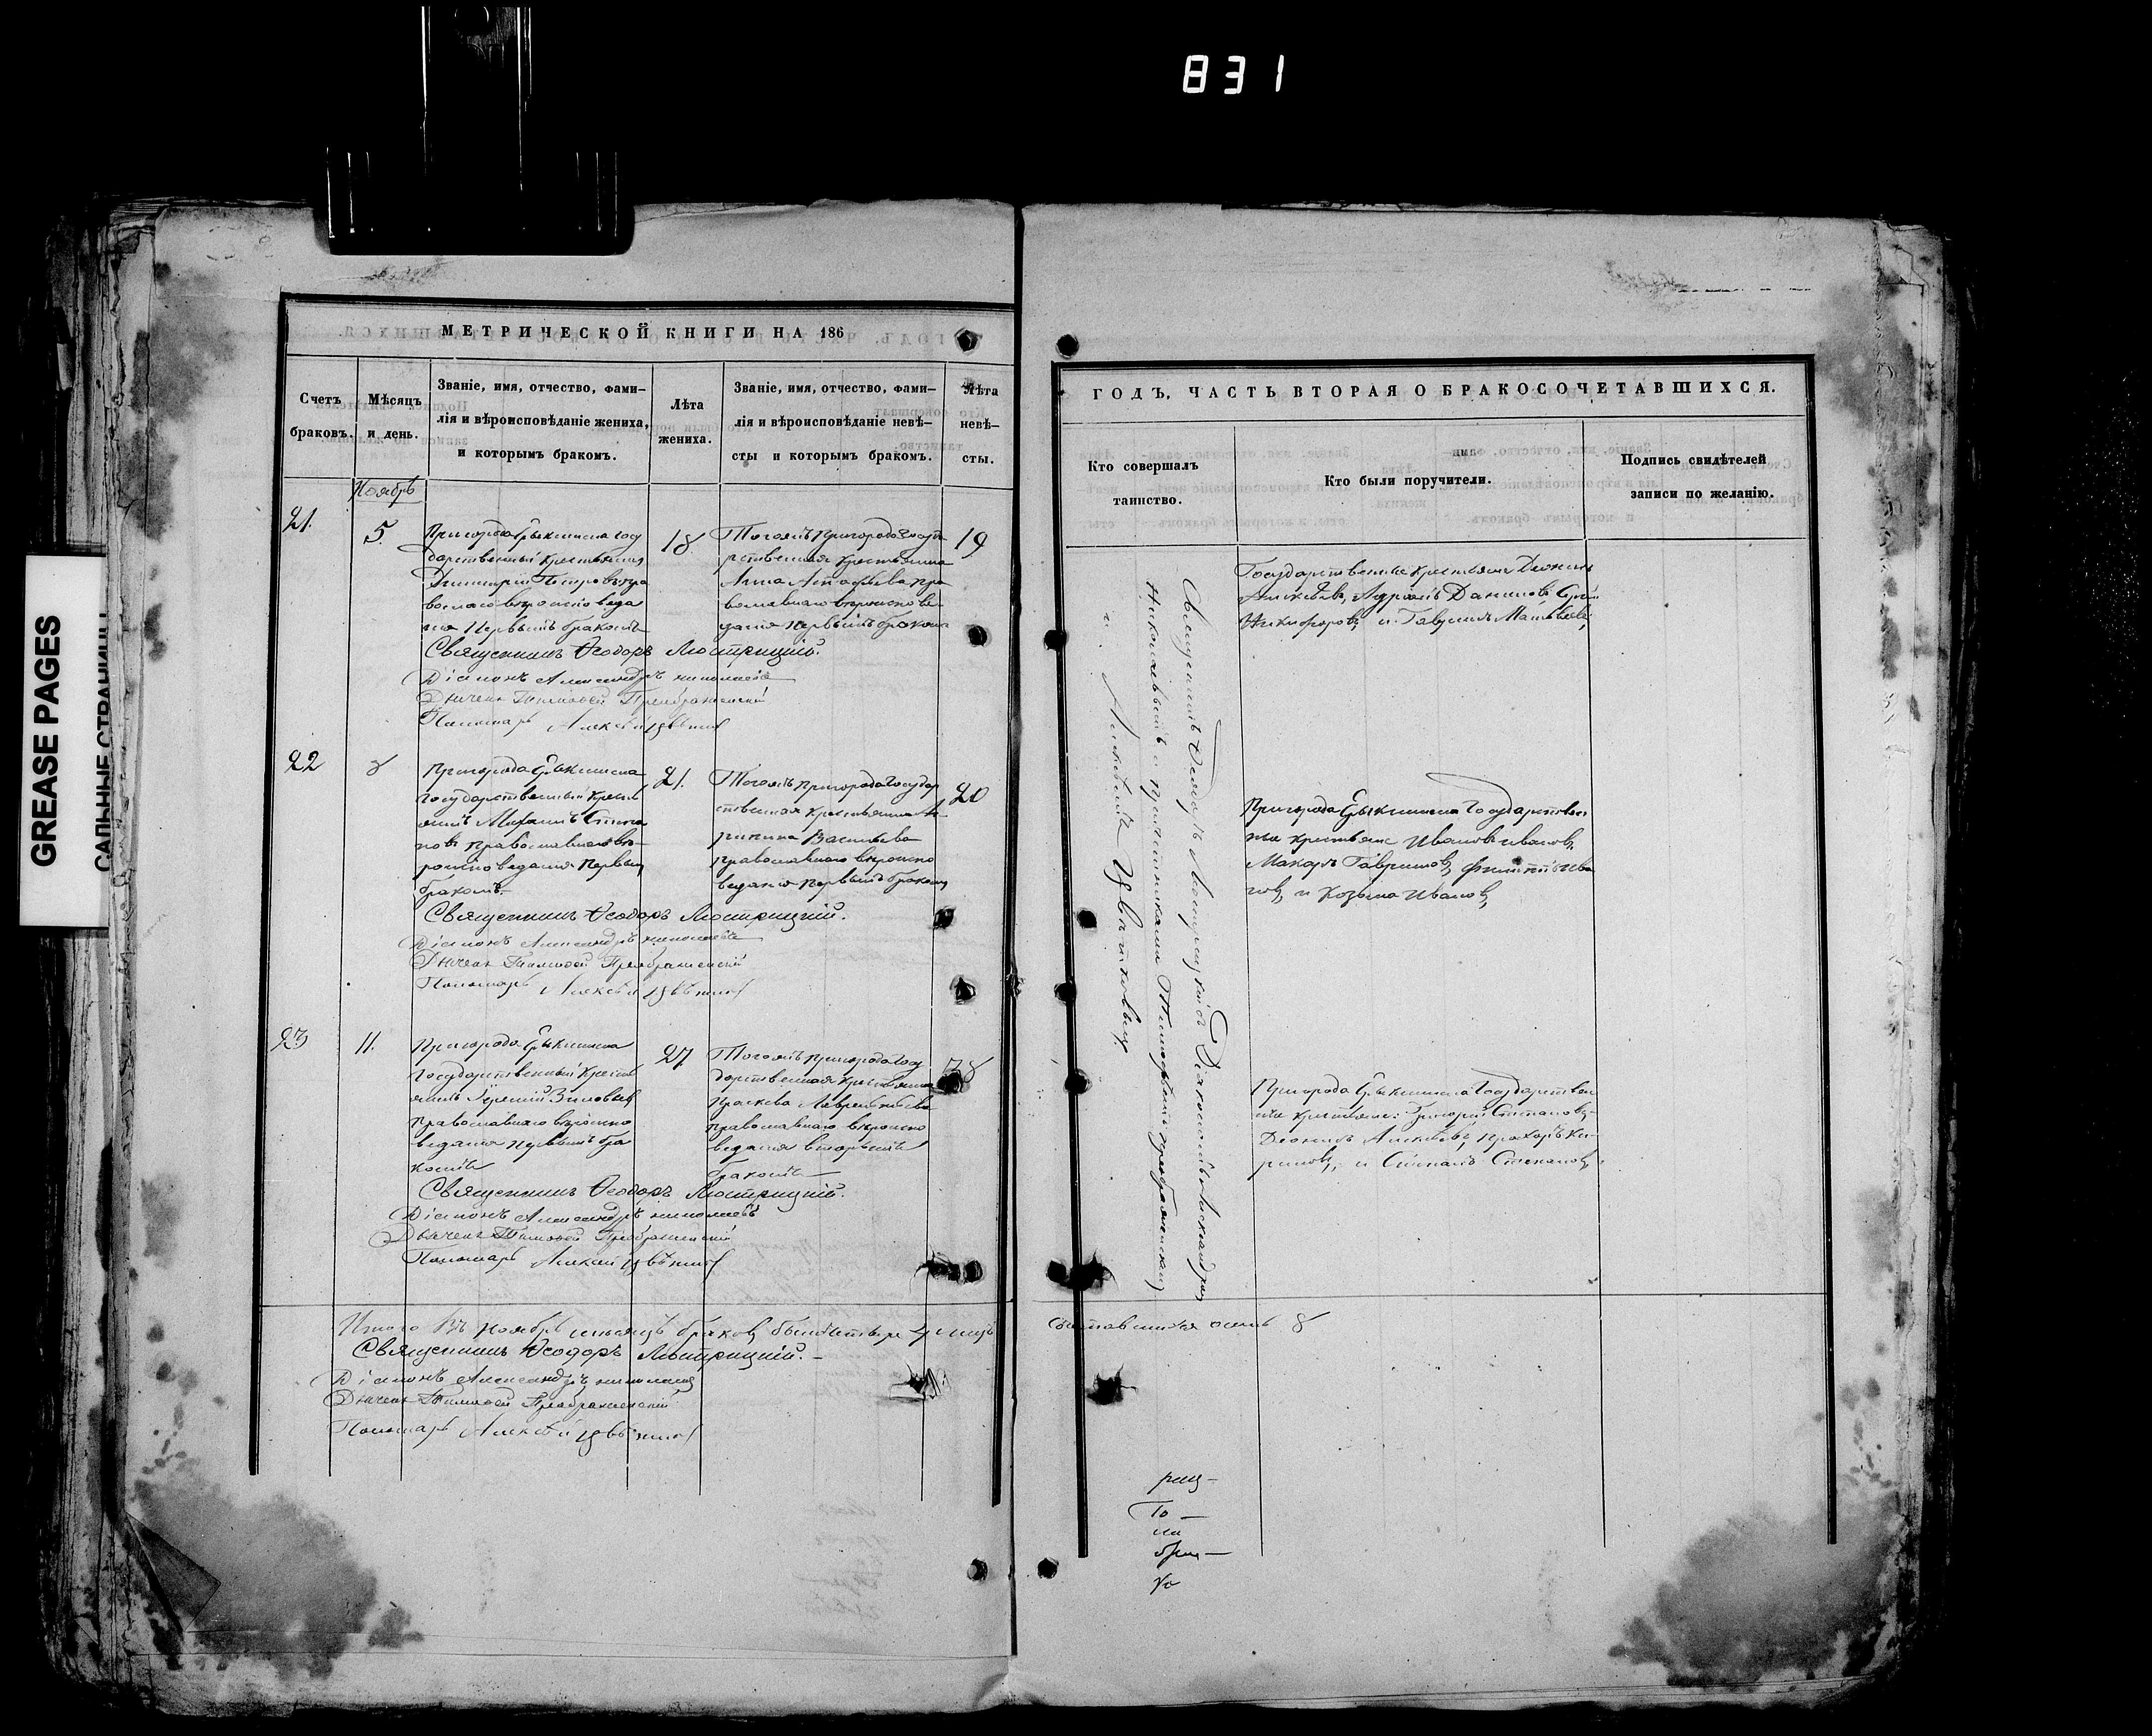 831
GREASE PAGES
САЛЬНЫЕ СТРАНИЦЫ
МЕТРИЧЕСКОЙ КНИГИ НА 186
Счетъ браковъ.
Мѣсяцъ и день.
Званіе, имя, отчество, фами-
лія и вѣроисповѣданіе жениха,
и которымъ бракомъ.
Лѣта
жениха.
Званіе, имя, отчество, фами-
лія и вѣроисповѣданіе невѣ-
сты и которымъ бракомъ.
Лѣта
невѣ-
сты.
Ноябрь
21.
5.
Пригорода Ерыклинска госу
дарственный крестьянинъ
Димитрій Петровъ пра
вославнаго вѣроисповеда
нія первымъ бракомъ
18
Тогожъ пригорода госуда
рственная крестьянка
Анна
православнаго вѣроиспове
данія первымъ бракомъ
19
Священникъ Ѳеодоръ Люстрицкій.
Діаконъ Александръ Николаевъ
Дьячекъ Тимофей Преображенскій
Пономарь Алексѣй
22
8
Пригорода Ерыклинска
государственный кресть
янинъ Михаилъ Степа
новъ православнаго вѣ
роисповеданія первымъ
бракомъ
21.
Тогожъ пригорода государ
ственная крестьянка
Васильева
православнаго вѣроиспо
веданія первымъ бракомъ
20
Священникъ Ѳеодоръ Люстрицкій.
Діаконъ Александръ Николаевъ
Дьячекъ Тимофей Преображенскій
Пономарь Алексѣй
23
11.
Пригорода Ерыклинска
государственный кресть
янинъ
православнаго вѣроиспо
веданія первымъ бра
комъ
27
Тогожъ пригорода госу
дарственная крестьянка
Праскева Лаврентьева
православнаго вѣроиспо
веданія вторымъ
бракомъ
38
Священникъ Ѳеодоръ Люстрицкій.
Діаконъ Александръ Николаевъ
Дьячекъ Тимофей Преображенскій
Пономарь Алексѣй
Итого въ ноябрѣ мѣсяцѣ браковъ было четыре 4 лицъ
Священникъ Ѳеодоръ Люстрицкій.
Діаконъ Александръ Николаевъ
Дьячекъ Тимофей Преображенскій
Пономарь Алексѣй
ГОДЪ, ЧАСТЬ ВТОРАЯ О БРАКОСОЧЕТАВШИХСЯ.
Кто совершалъ
таинство.
Кто были поручители.
Подпись свидѣтелей
записи по желанію.
Священникъ Ѳеодоръ Люстрицкій съ Діакономъ Александромъ
Николаевымъ и причетниками Тимофеемъ Преображенскимъ
и Алексѣемъ
Государственные крестьяне
Алексѣевъ, Андреянъ Даниловъ,
Никифоровъ, и Гавріилъ Матвѣевъ,
Пригорода Ерыклинска государствен
ные крестьяне Иванъ Ивановъ,
Макаръ Гавриловъ, Филиппъ Ива
новъ, и Козьма Ивановъ
Пригорода Ерыклинска государствен
ные крестьяне: Григорій Степановъ,
Алексѣевъ, Прохоръ Ки-
риловъ, и Степанъ Степановъ.
сочетавшихся осмь 8